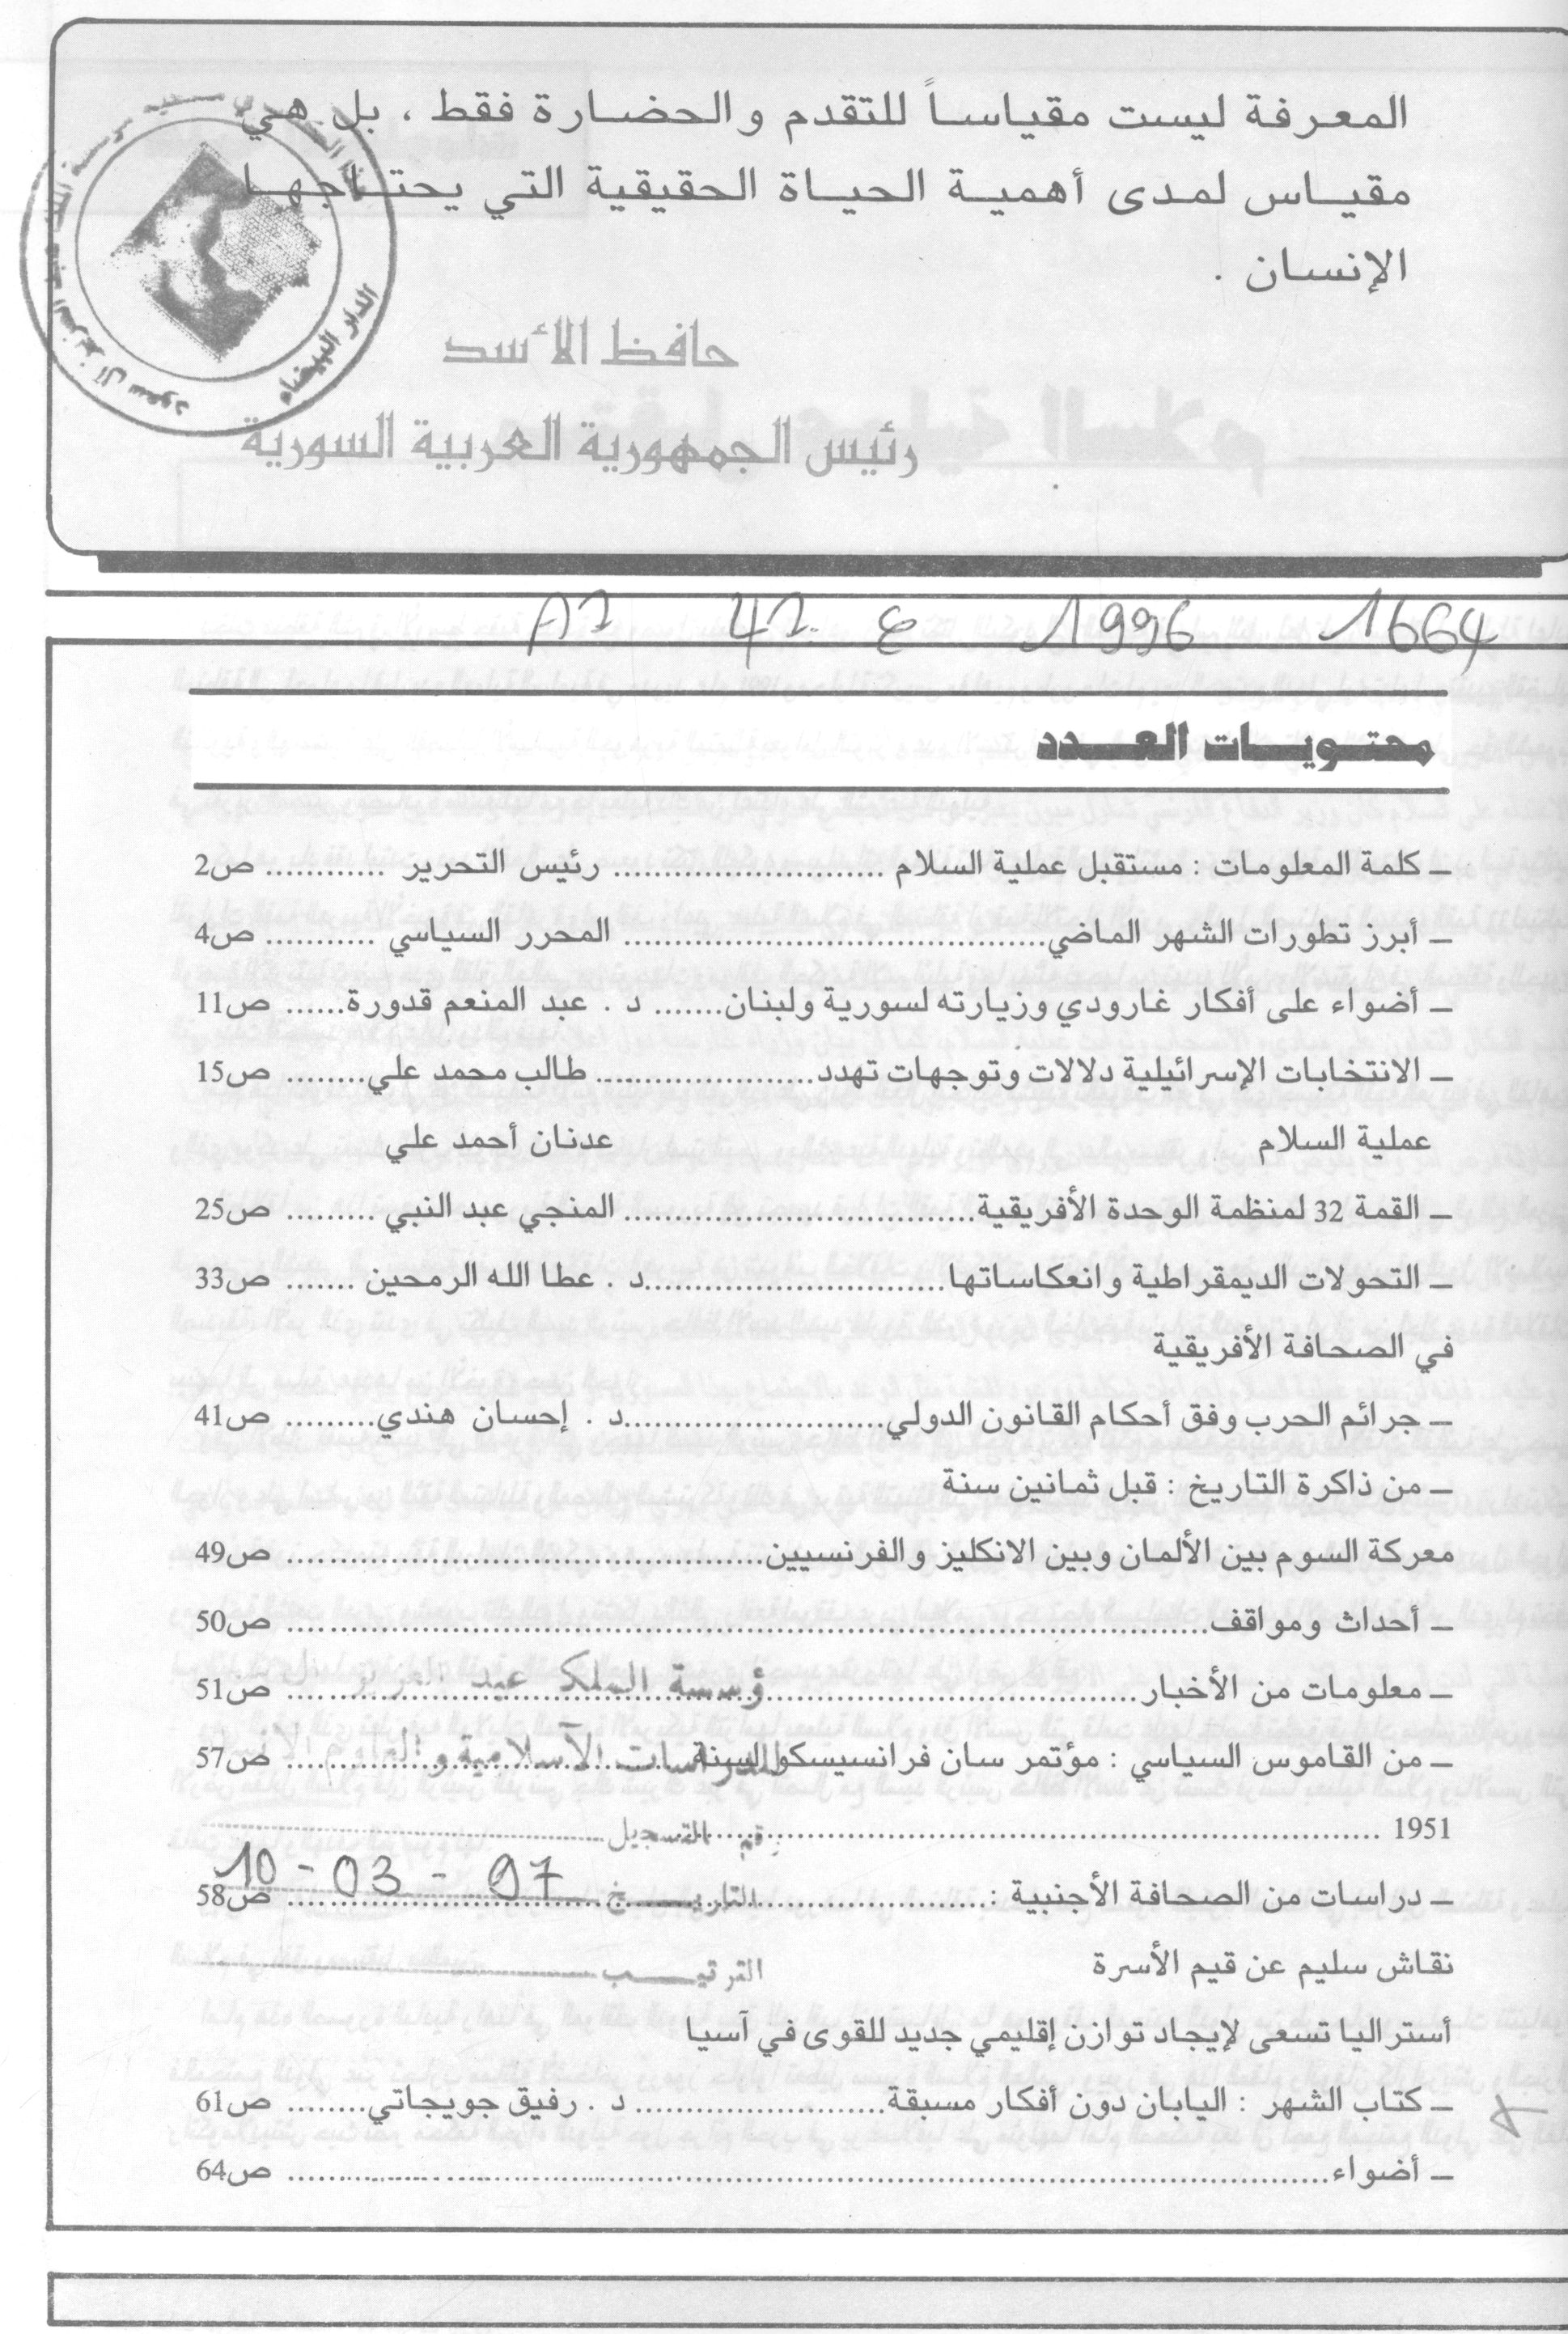 المعرفة ليست مقياساً للتقدم والحضارة فقط ، بل هي
مقياس لمدى أهمية الحياة الحقيقية التي يحتاجها
الإنسان .
حافظ الأسد
رئيس الجمهورية العربية السورية
الدار البيضاء
1664 1996 ع 41 A1
محتويات العدد
ــ كلمة المعلومات : مستقبل عملية السلام .......................... رئيس التحرير ............ ص2
ــ أبرز تطورات الشهر الماضي........................................ المحرر السياسي ........... ص4
ــ أضواء على أفكار غارودي وزيارته لسورية ولبنان....... د . عبد المنعم قدورة...... ص11
ــ الانتخابات الإسرائيلية دلالات وتوجهات تهدد..................... طالب محمد علي........ ص15
عملية السلام عدنان أحمد علي
ــ القمة 32 لمنظمة الوحدة الأفريقية................................. المنجي عبد النبي ......... ص25
ــ التحولات الديمقراطية وانعكاساتها.............................د . عطا الله الرمحين ....... ص33
في الصحافة الأفريقية
ــ جرائم الحرب وفق أحكام القانون الدولي.........................د . إحسان هندي......... ص41
ــ من ذاكرة التاريخ : قبل ثمانين سنة
معركة السوم بين الألمان وبين الانكليز والفرنسيين............................................. ص49
ــ أحداث ومواقف........................................................................................ ص50
ــ معلومات من الأخبار................................................................................. ص51
ؤسسة الملك عبد العزيز
ــ من القاموس السياسي : مؤتمر سان فرانسيسكو لسنة........................................ ص57
للدراسات الآسلامية والعلوم
1951 .........................................................
رقم التسجيل
ــ دراسات من الصحافة الأجنبية :................................................................... ص58
التاريخ 10 - 03 - 97
نقاش سليم عن قيم الأسرة
الترتيب
أستراليا تسعى لإيجاد توازن إقليمي جديد للقوى في آسيا
ــ كتاب الشهر : اليابان دون أفكار مسبقة........................ د . رفيق جويجاتي........ ص61
ــ أضواء................................................................................................... ص64